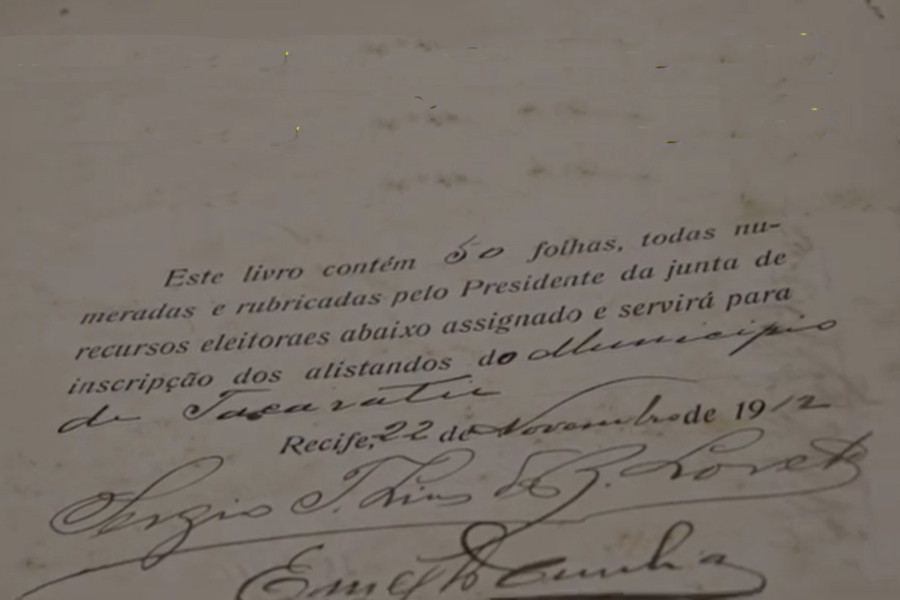 Este livro contém 50 folhas, todas nu-
meradas e rubricadas pelo Presidente da junta de
recursos eleitoraes abaixo assignado e servirá para
inscripção dos alistandos do Municipio
de Tacaratu
Recife, 22 de Novembro de 1912
Sergio T. Lins de B. Loreto
Cunha